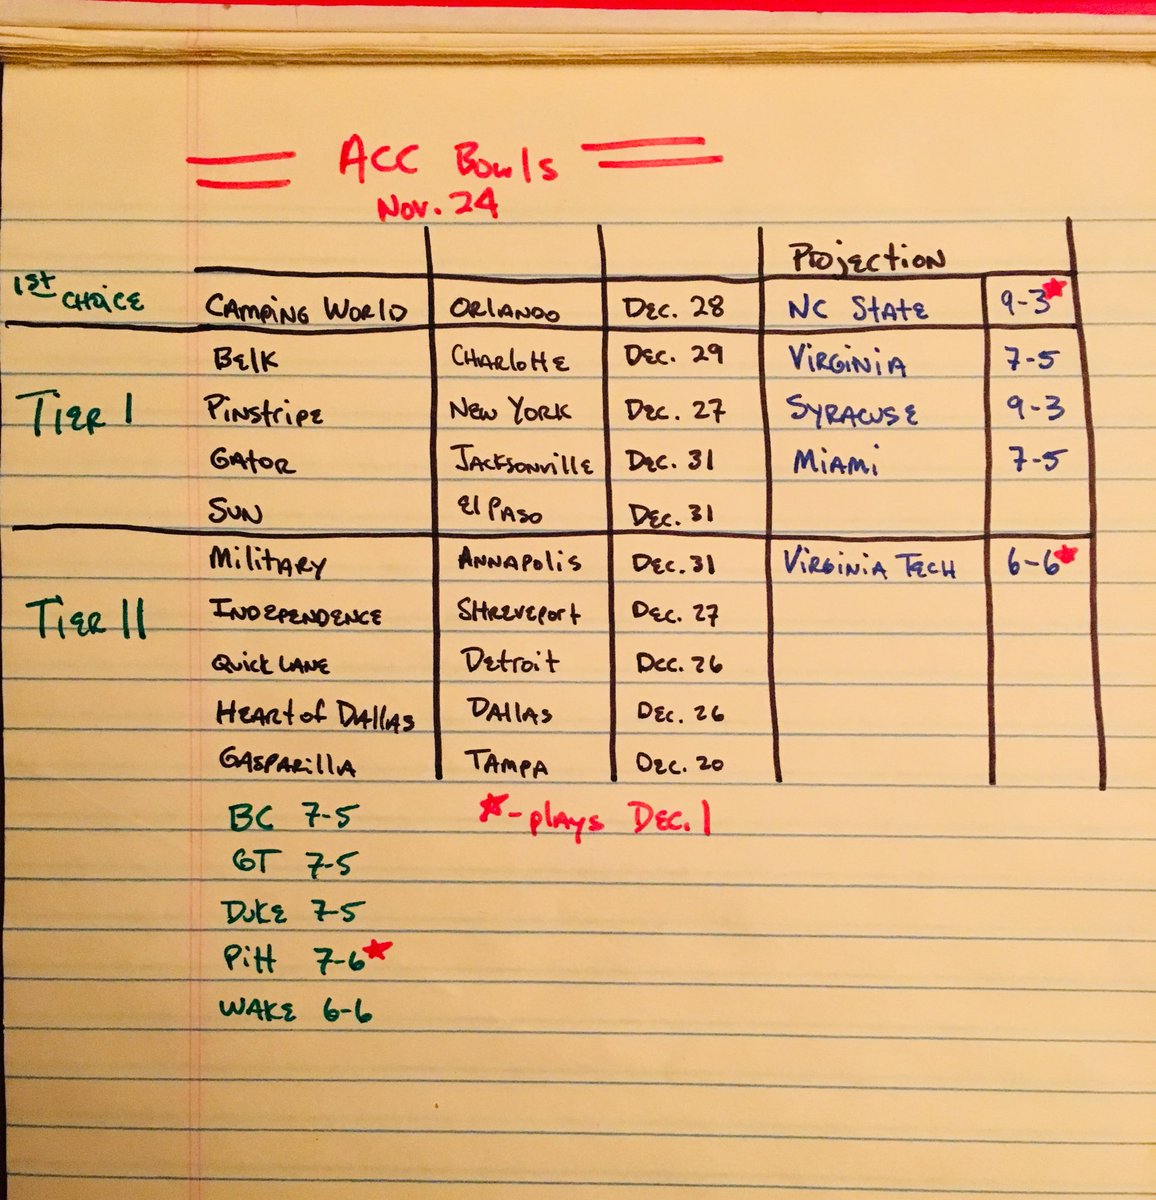 ACC Bowls
Nov. 24
Projection
1st CHOICE CAMPING WORLD ORLANDO DEC. 28 NC STATE 9-3★
BELK CHARLOTTE DEC. 29 VIRGINIA 7-5
TIER I PINSTRIPE NEW YORK DEC. 27 SYRACUSE 9-3
GATOR JACKSONVILLE DEC. 31 MIAMI 7-5
SUN El PASO DEC. 31
MILITARY ANNAPOLIS DEC. 31 VIRGINIA TECH 6-6★
TIER II INDEPENDENCE SHREVEPORT DEC. 27
QUICK LANE DETROIT DEC. 26
HEART of DALLAS DALLAS DEC. 26
GASPARILLA TAMPA DEC. 20
BC 7-5 ★-plays DEC. 1
GT 7-5
DUKE 7-5
PITT 7-6★
WAKE 6-6